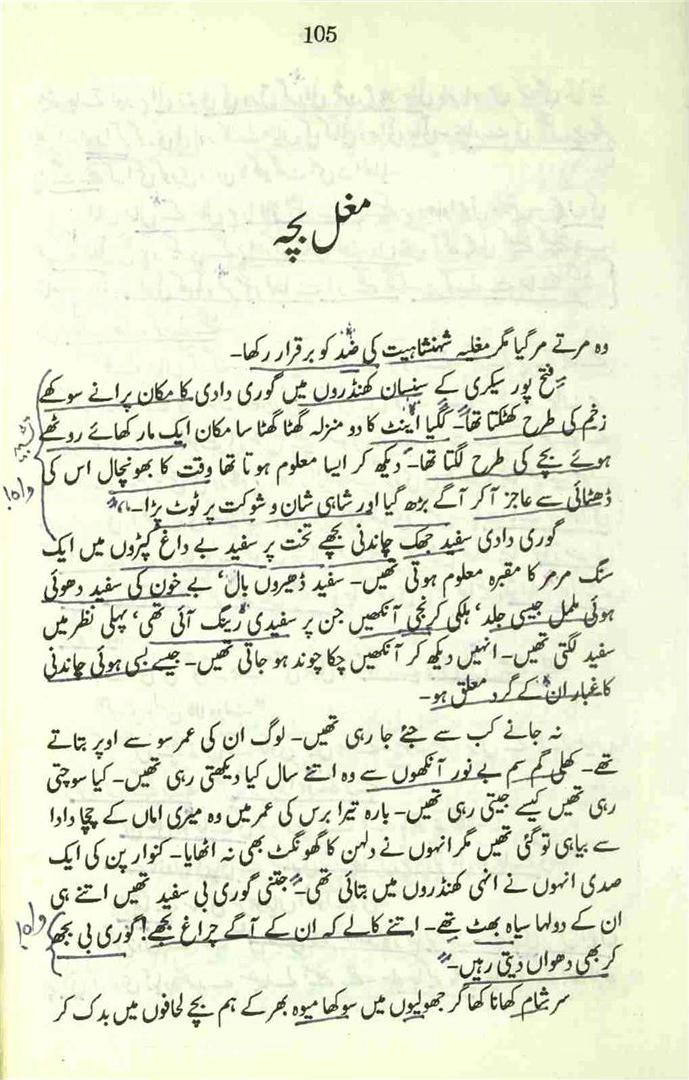 105
مغل بچہ
وہ مرتے مر گیا مگر مغلیہ شہنشاہیت کی ضد کو برقرار رکھا۔
فتح پور سیکری کے سنسان کھنڈروں میں گوری دادی کا مکان پرانے سوکھے
زخم کی طرح کھٹکتا تھا۔ ککیا اینٹ کا دو منزلہ گھٹا گھٹا سا مکان ایک مار کھائے روٹھے
ہوئے بچے کی طرح لگتا تھا۔ دیکھ کر ایسا معلوم ہوتا تھا وقت کا بھونچال اس کی
ڈھٹائی سے عاجز آ کر آگے بڑھ گیا اور شاہی شان و شوکت پر ٹوٹ پڑا۔
واہ!
گوری دادی سفید جھک چاندنی بچھے تخت پر سفید بے داغ کپڑوں میں ایک
سنگ مرمر کا مقبرہ معلوم ہوتی تھیں۔ سفید ڈھیروں بال، بے خون کی سفید دھوئی
ہوئی ململ جیسی جلد، ہلکی کرنجی آنکھیں جن پر سفیدی رینگ آئی تھی، پہلی نظر میں
سفید لگتی تھیں۔ انہیں دیکھ کر آنکھیں چکا چوند ہو جاتی تھیں۔ جیسے بسی ہوئی چاندنی
کا غبار ان کے گرد معلق ہو۔
نہ جانے کب سے جئے جا رہی تھیں۔ لوگ ان کی عمر سو سے اوپر بتاتے
تھے۔ کھلی گم سم بے نور آنکھوں سے وہ اتنے سال کیا دیکھتی رہی تھیں۔ کیا سوچتی
رہی تھیں کیسے جیتی رہی تھیں۔ بارہ تیرا برس کی عمر میں وہ میری اماں کے چچا دادا
سے بیاہی تو گئی تھیں مگر انہوں نے دلہن کا گھونگٹ بھی نہ اٹھایا۔ کنوار پن کی ایک
صدی انہوں نے انہی کھنڈروں میں بتائی تھی۔ جتنی گوری بی سفید تھیں اتنے ہی
ان کے دولہا سیاہ بھٹ تھے۔ اتنے کالے کہ ان کے آگے چراغ بجھے! گوری بی بجھ
واہ!
کر بھی دھواں دیتی رہیں۔
سر شام کھانا کھا کر جھولیوں میں سوکھا میوہ بھر کے ہم بچے لحافوں میں بدک کر